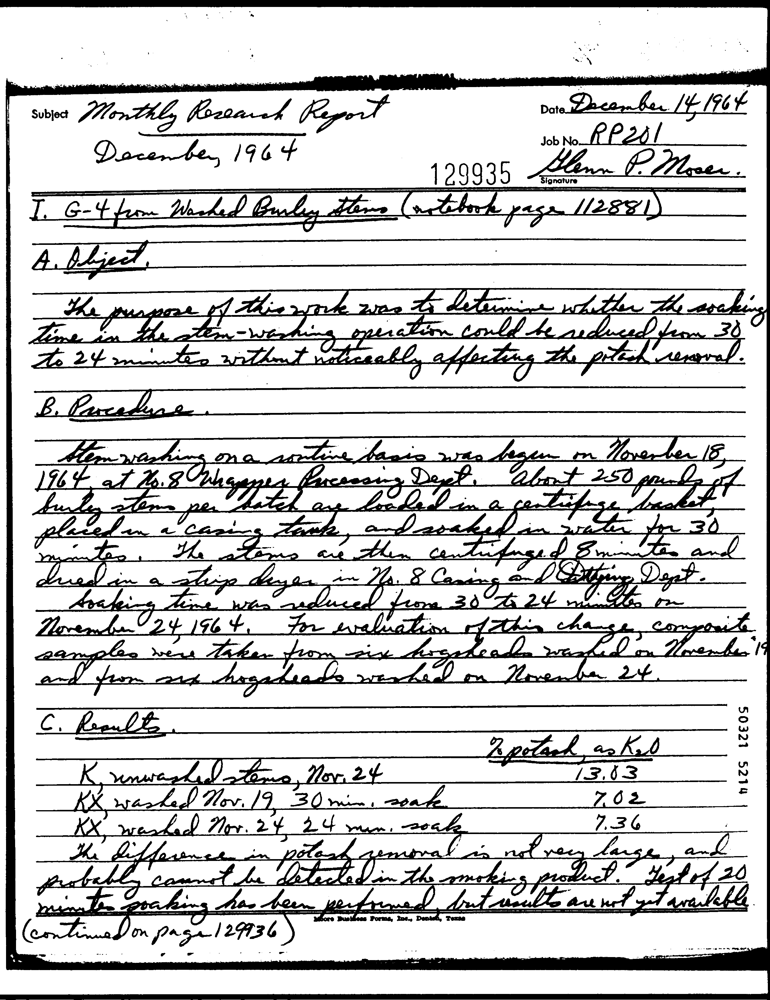 Subject Monthly Research Report
December, 1964
Date December 14, 1964
Job No. RP201
129935
Glenn P. Moser.
Signature
I. G-4 from Washed Burley Stems (notebook page 112881)
A. Object.
The purpose of this work was to determine whether the soaking
time in the stem-washing operation could be reduced from 30
to 24 minutes without noticeably affecting the potash removal.
B. Procedure.
Stem washing on a routine basis was begun on November 18,
1964, at No. 8 Wrapper Processing Dept. About 250 pounds of
burley stems per batch are loaded in a centrifuge basket,
placed in a casing tank, and soaked in water for 30
minutes. The stems are then centrifuged 8 minutes and
dried in a strip dryer in No. 8 Casing and Dept.
Soaking time was reduced from 30 to 24 minutes on
November 24, 1964. For evaluation of this change, composite
samples were taken from six hogsheads washed on November 19
and from six hogsheads washed on November 24.
C. Results.
% potash, as K2O
K, unwashed stems, Nov. 24 13.03
KX, washed Nov. 19, 30 min. soak 7.02
KX, washed Nov. 24, 24 min. soak 7.36
The difference in potash removal is not very large, and
probably cannot be detected in the smoking product. Test of 20
minutes soaking has been performed, but results are not yet available.
Moore Business Forms, Inc., Denton, Texas
(continued on page 129936)
50321 5214